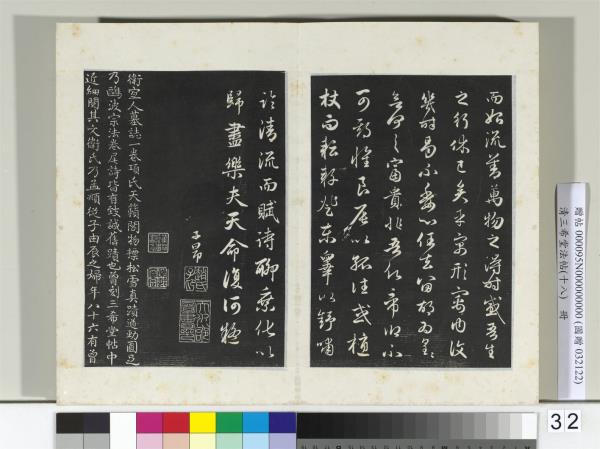 而始流善萬物之得時感吾生
之行休已矣乎寓形寓內復
幾時曷不委心任去留胡為遑遑
何之富貴非吾願帝鄉不
可期懷良辰以孤往或植
杖而耘耔登東皋以舒嘯
臨清流而賦詩聊乘化以
歸盡樂夫天命復何疑
子昂
衛宜人墓誌一卷項氏天籟閣物標松雪真蹟遒勁圓足
乃鷗波宗法卷尾詩皆有致誠舊蹟也曾刻三希堂帖中
近細閱其文衛氏乃孟頫從子由辰之婦年八十六有曾
贈帖 000095N000000000 (國贈 032122)
清三希堂法帖(十八) 冊
32